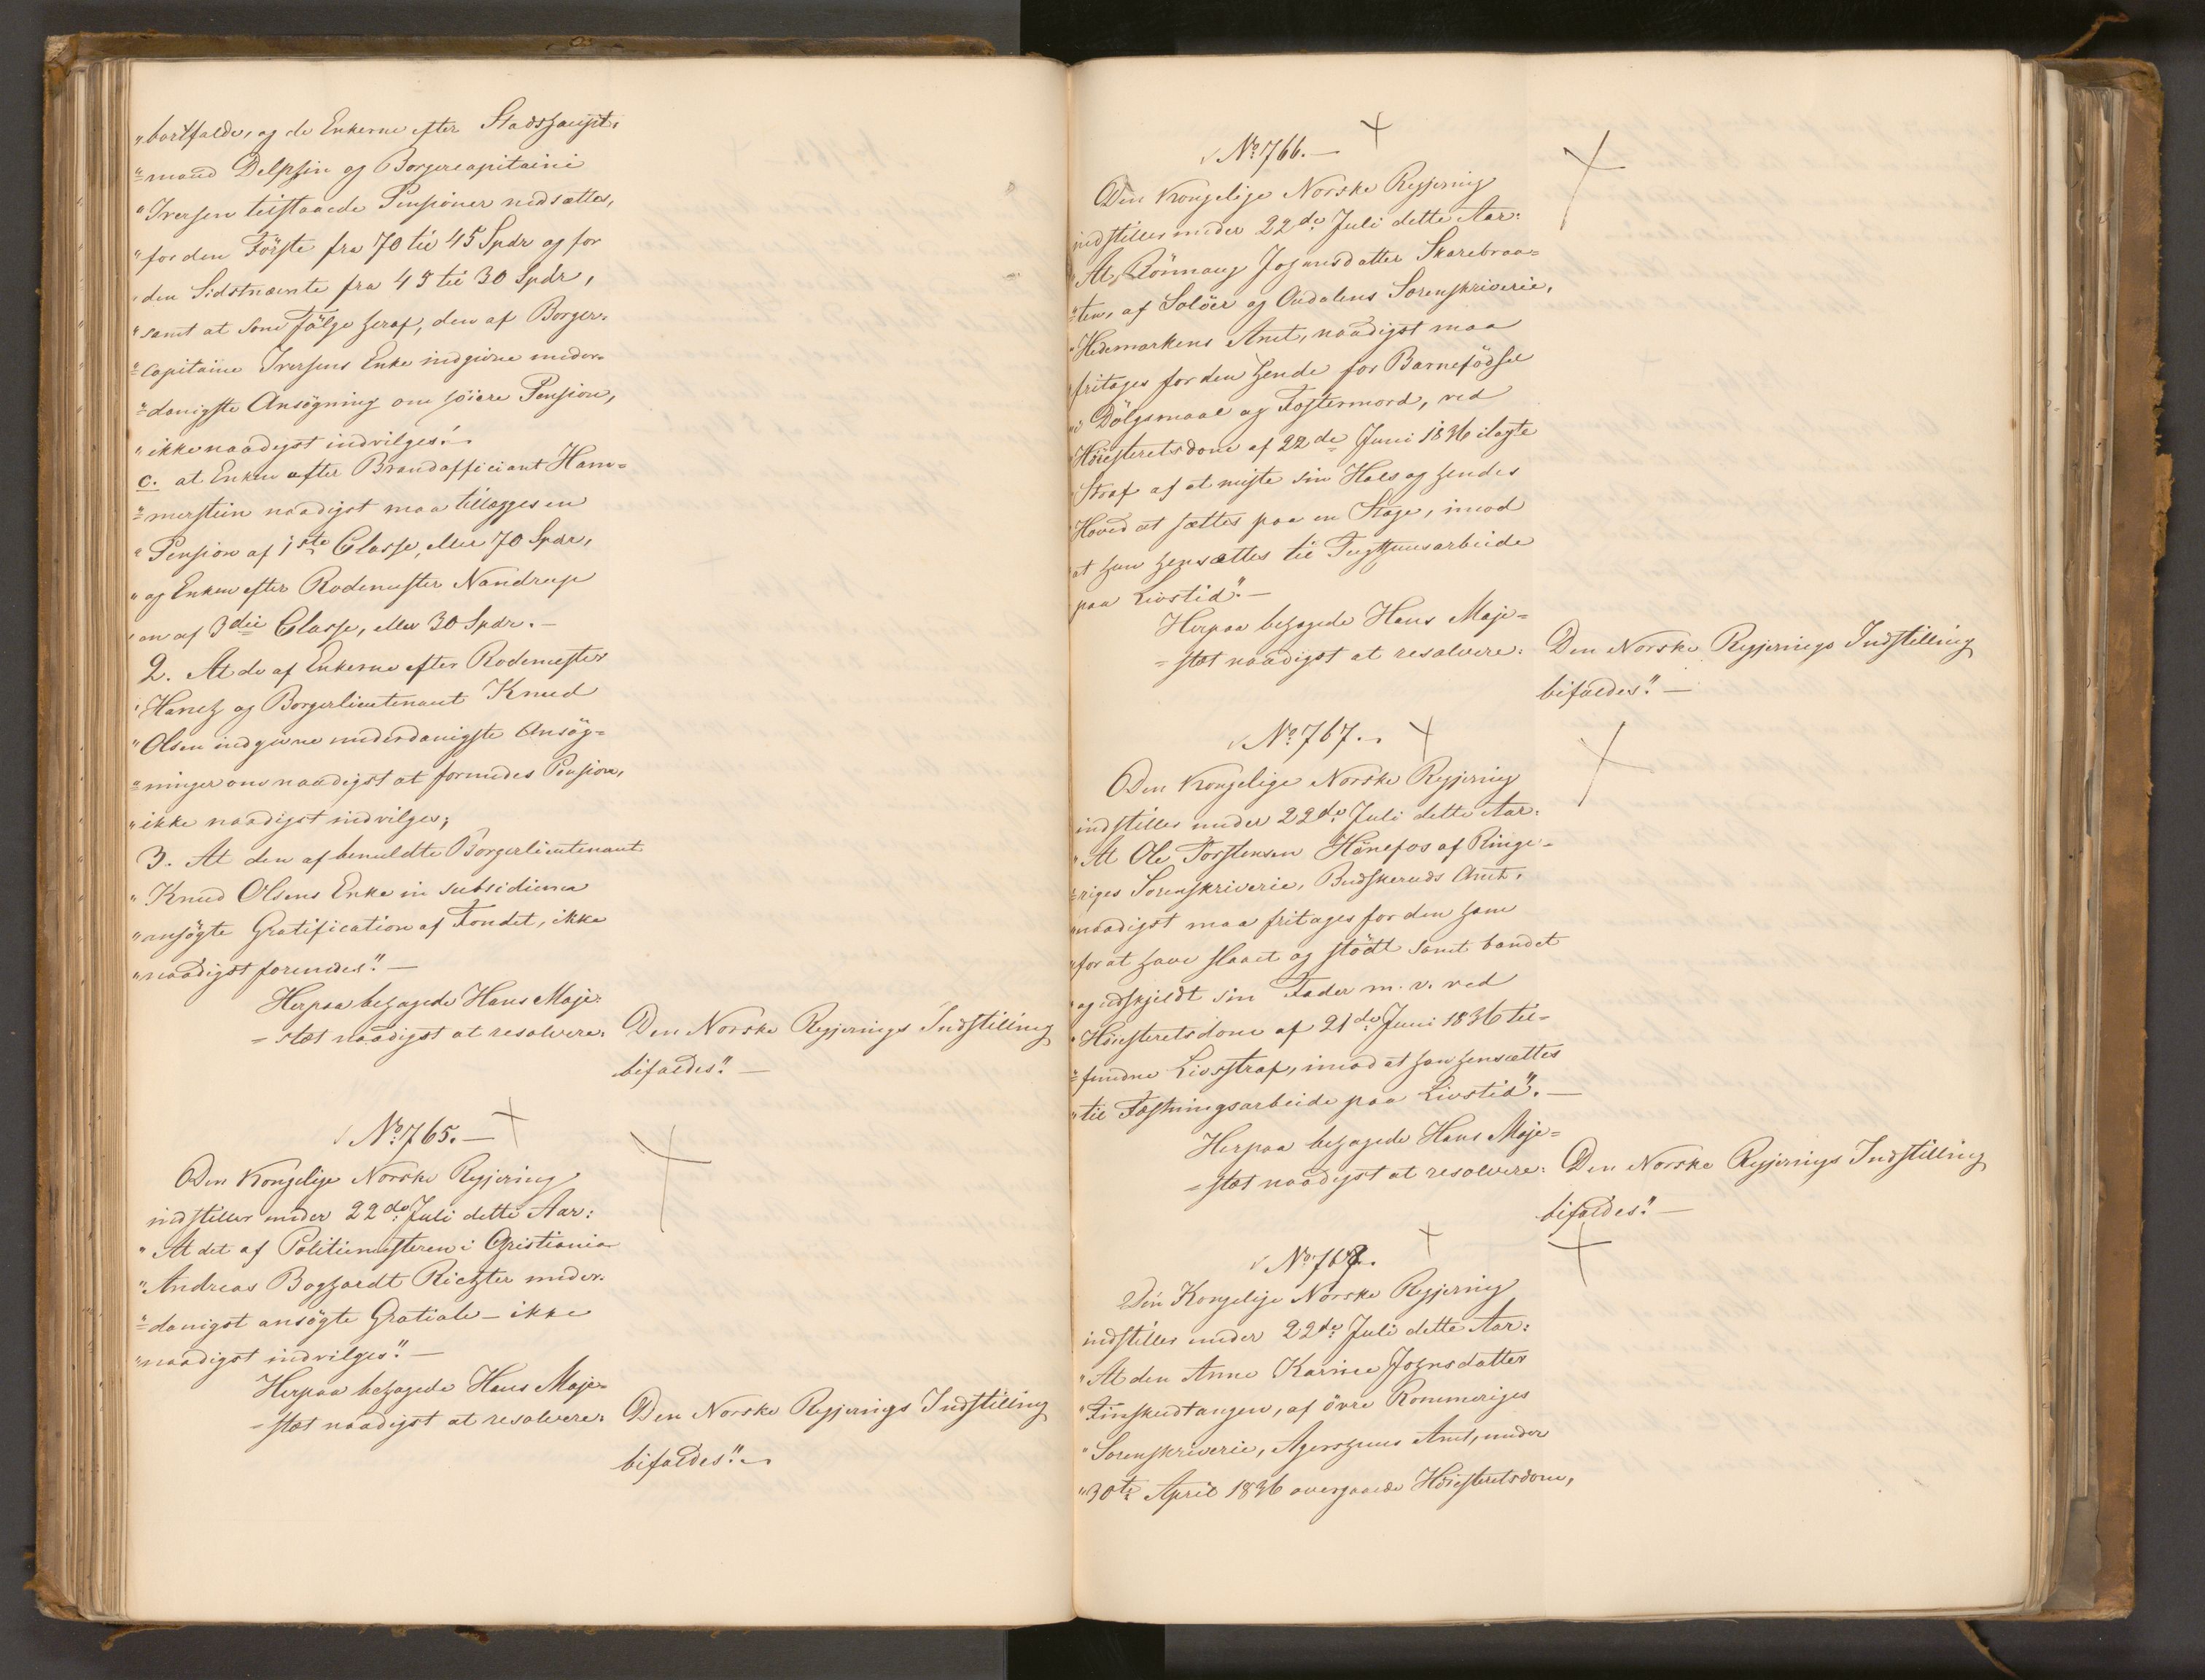 "bortfalde, og de Enkerne efter Stadshaupt-
"=mand Delphin og Borgercapitaine
"Iversen tilstaaede Pensioner nedsættes,
"for den Förste fra 70 til 45 Spdr og for
"den Sidstnævnte fra 45 til 30 Spdr,
"samt at som Fölge heraf, den af Borger-
"=capitaine Iversens Enke indgivne under-
"=danigste Ansögning om höiere Pension,
"ikke naadigst indvilges.
c. at Enken efter Brandofficiant Ham-
"=merstein naadigst maa tillægges en
"Pension af 1ste Classe, eller 70 Spdr,
"og Enken efter Rodemester Nandrup
"en af 3die Classe, eller 30 Spdr. —
2. At de af Enkerne efter Rodemester
"Hanch og Borgerlieutenant Knud
"Olsen indgivne underdanigste Ansög-
"=ninger om naadigst at forundes Pension,
"ikke naadigst indvilges;
3. At den af bemeldte Borgerlieutenant
"Knud Olsens Enke in subsidium
"ansögte Gratification af Fondet, ikke
"naadigst forundes". —
Herpaa behagede Hans Maje-
=stæt naadigst at resolvere: Den Norske Regjerings Indstilling
bifaldes". —
No 765. —
Den Kongelige Norske Regjering
indstiller under 22de Juli dette Aar:
"At det af Politiemesteren i Christiania
"Andreas Boghardt Richter under-
"=danigst ansögte Gratiale — ikke
"naadigst indvilges". —
Herpaa behagede Hans Maje-
=stæt naadigst at resolvere: Den Norske Regjerings Indstilling
bifaldes". —
No 766. —
Den Kongelige Norske Regjering
indstiller under 22de Juli dette Aar:
"At Rönnaug Johnsdatter Skarebraa-
"=ten, af Solöer og Oudalens Sorenskriverie,
"Hedemarkens Amt, naadigst maa
fritages for den hende for Barnefödsel
"i Dölgsmaal og Fostermord, ved
"Höiesteretsdom af 22de Juni 1836 ilagte
"Straf af at miste sin Hals og hendes
"Hoved at sættes paa en Stage, imod
at hun hensættes til Tugthuusarbeide
paa Livstid". —
Herpaa behagede Hans Maje-
=stæt naadigst at resolvere: Den Norske Regjerings Indstilling
bifaldes". —
No 767. —
Den Kongelige Norske Regjering
indstiller under 22de Juli dette Aar:
"At Ole Torstensen Hönefos af Ringe-
"=riges Sorenskriverie, Budskeruds Amt,
"naadigst maa fritages for den ham
"for at have slaaet og stödt samt bandet
"og udskjeldt sin Fader m. v. ved
"Höiesteretsdom af 21de Juni 1836 til-
"=fundne Livsstraf, imod at han hensættes
"til Fæstningsarbeide paa Livstid". —
Herpaa behagede Hans Maje-
=stæt naadigst at resolvere: Den Norske Regjerings Indstilling
bifaldes". —
No 768.
Den Kongelige Norske Regjering
indstiller under 22de Juli dette Aar:
"At den Anne Karine Johnsdatter
"Finskudtangen, af övre Rommeriges
"Sorenskriverie, Agershuus Amt, under
"30te April 1836 overgaaede Höiesteretsdom,